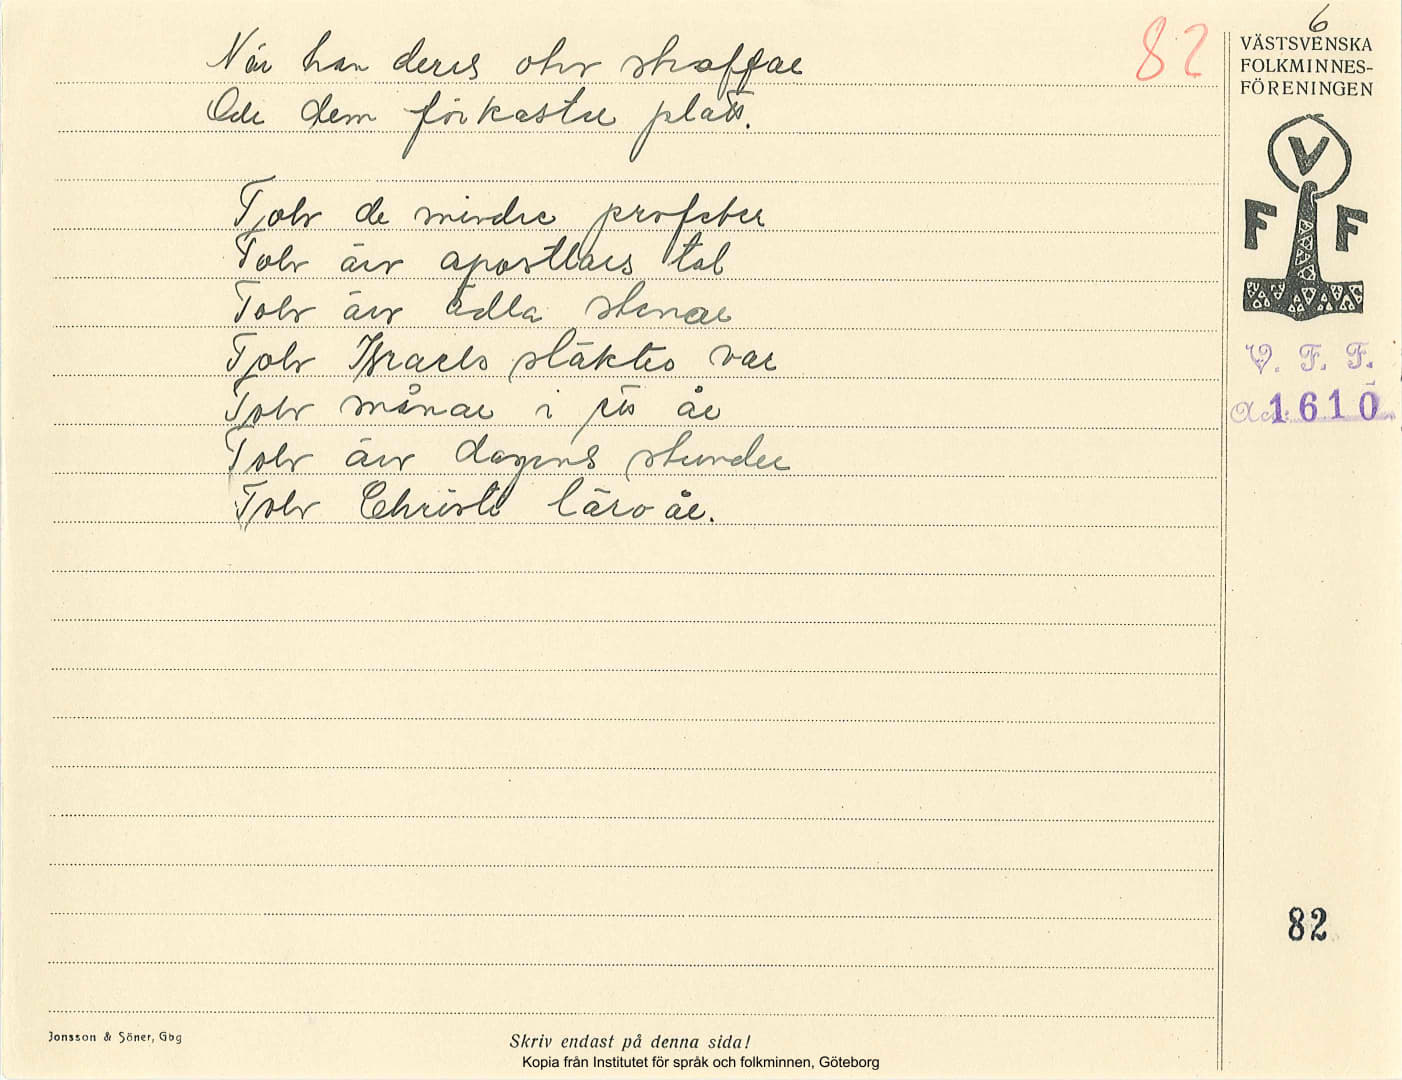 När han deras otro straffar
Och dem förkastar platt.
Tolv de mindre profeter
Tolv äro apostlars tal
Tolv äro ädla stenar
Tolv Israels släktes var
Tolv månar i sis år
Tolv äro dagens stunder
Tolv Christi läroår.
82
6
VÄSTSVENSKA
FOLKMINNES-
FÖRENINGEN
V
F F
V. F. F.
Acc. 1610
82
Jonsson & Söner, Gbg
Skriv endast på denna sida!
Kopia från Institutet för språk och folkminnen, Göteborg